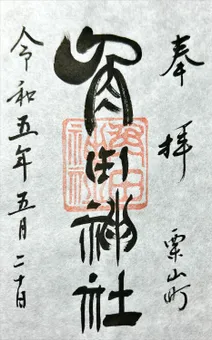 奉拝
栗山町
角田神社
令和五年五月二十日